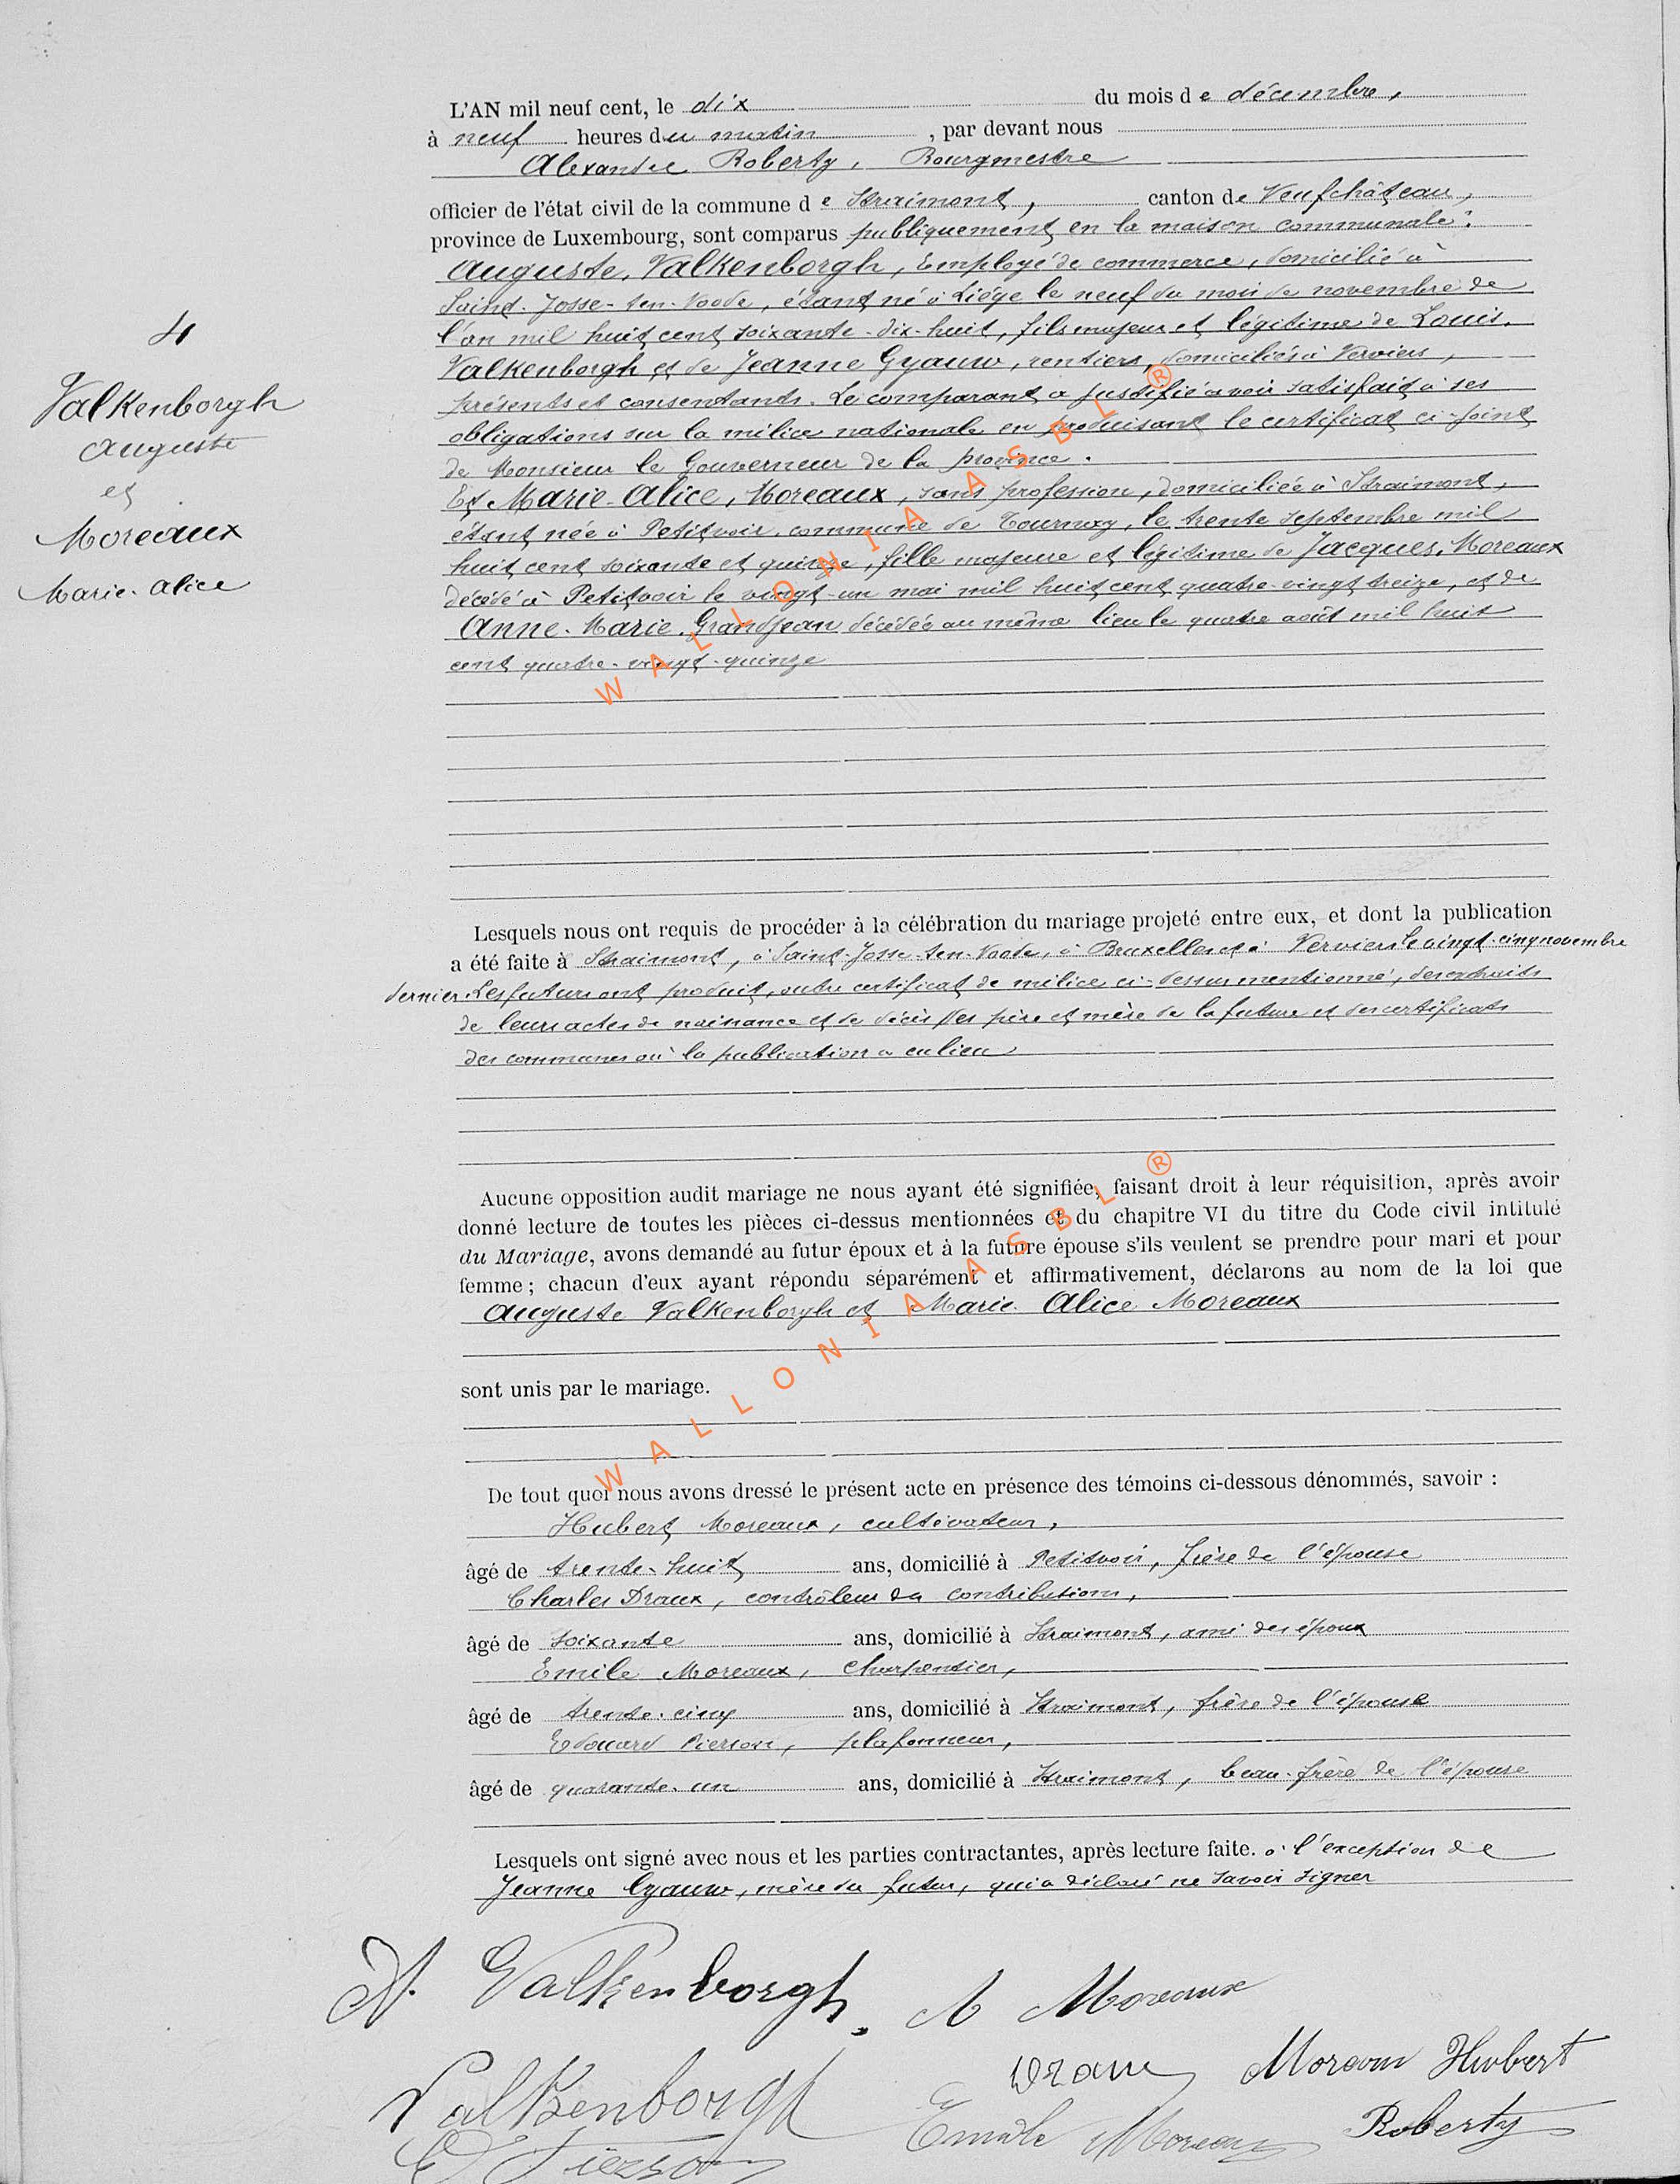 L'AN mil neuf cent, le dix du mois de décembre,
à neuf heures du matin, par devant nous
Alexandre Roberty, Bourgmestre
officier de l'état civil de la commune de Straimont, canton de Neufchâteau,
province de Luxembourg, sont comparus publiquement en la maison communale:
Auguste, Valkenborgh, Employé de commerce, domicilié à
Saint-Josse-ten-Noode, étant né à Liége le neuf du mois de novembre de
l'an mil huit cent soixante-dix-huit, fils majeur et légitime de Louis,
Valkenborgh et de Jeanne Gyauw, rentiers, domiciliés à Verviers,
présents et consentants. Le comparant a justifié avoir satisfait à ses
obligations sur la milice nationale en produisant le certificat ci-joint
de Monsieur le Gouverneur de la province.
Et Marie-Alice, Moreaux, sans profession, domiciliée à Straimont,
étant née à Petitvoir, commune de Tournay, le trente septembre mil
huit cent soixante et quinze, fille majeure et légitime de Jacques, Moreaux
décédé à Petitvoir le vingt-un mai mil huit cent quatre-vingt treize, et de
Anne-Marie, Grandjean décédée au même lieu le quatre août mil huit
cent quatre-vingt-quinze
4
Valkenborgh
Auguste
et
Moreaux
Marie-Alice
Lesquels nous ont requis de procéder à la célébration du mariage projeté entre eux, et dont la publication
a été faite à Straimont, à Saint-Josse-ten-Noode, à Bruxelles et à Verviers le vingt-cinq novembre
dernier. Les futurs ont produit, outre certificat de milice ci-dessus mentionné, des extraits
de leurs actes de naissance et de décès des père et mère de la future et des certificats
des communes où la publication a eu lieu
Aucune opposition audit mariage ne nous ayant été signifiée, faisant droit à leur réquisition, après avoir
donné lecture de toutes les pièces ci-dessus mentionnées et du chapitre VI du titre du Code civil intitulé
du Mariage, avons demandé au futur époux et à la future épouse s'ils veulent se prendre pour mari et pour
femme; chacun d'eux ayant répondu séparément et affirmativement, déclarons au nom de la loi que
Auguste Valkenborgh et Marie-Alice Moreaux
sont unis par le mariage.
De tout quoi nous avons dressé le présent acte en présence des témoins ci-dessous dénommés, savoir :
Hubert Moreaux, cultivateur,
âgé de trente-huit ans, domicilié à Petitvoir, frère de l'épouse
Charles Draux, contrôleur des contributions,
âgé de soixante ans, domicilié à Straimont, ami des époux
Emile Moreaux, charpentier,
âgé de trente-cinq ans, domicilié à Straimont, frère de l'épouse
Edouard Pierson, plafonneur,
âgé de quarante-un ans, domicilié à Straimont, beau-frère de l'épouse
Lesquels ont signé avec nous et les parties contractantes, après lecture faite. à l'exception de
Jeanne Gyauw, mère du futur, qui a déclaré ne savoir signer
A. Valkenborgh. A Moreaux
Valkenborgh Draux Moreaux Hubert
E Pierson Emile Moreaux Roberty
WALLONIA ASBL ®
WALLONIA ASBL ®